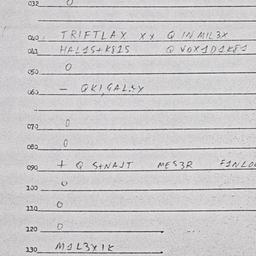 032 0
040 TRIFTLAX XY Q INMIL3X
041 HAL1S+K81S Q VOX1D1K81
050 0
060 - QKI,GALXY
070 0
080 0
090 + Q S+NAJT MES3R
100 0
110 0
120 0
130 M1L3XIK